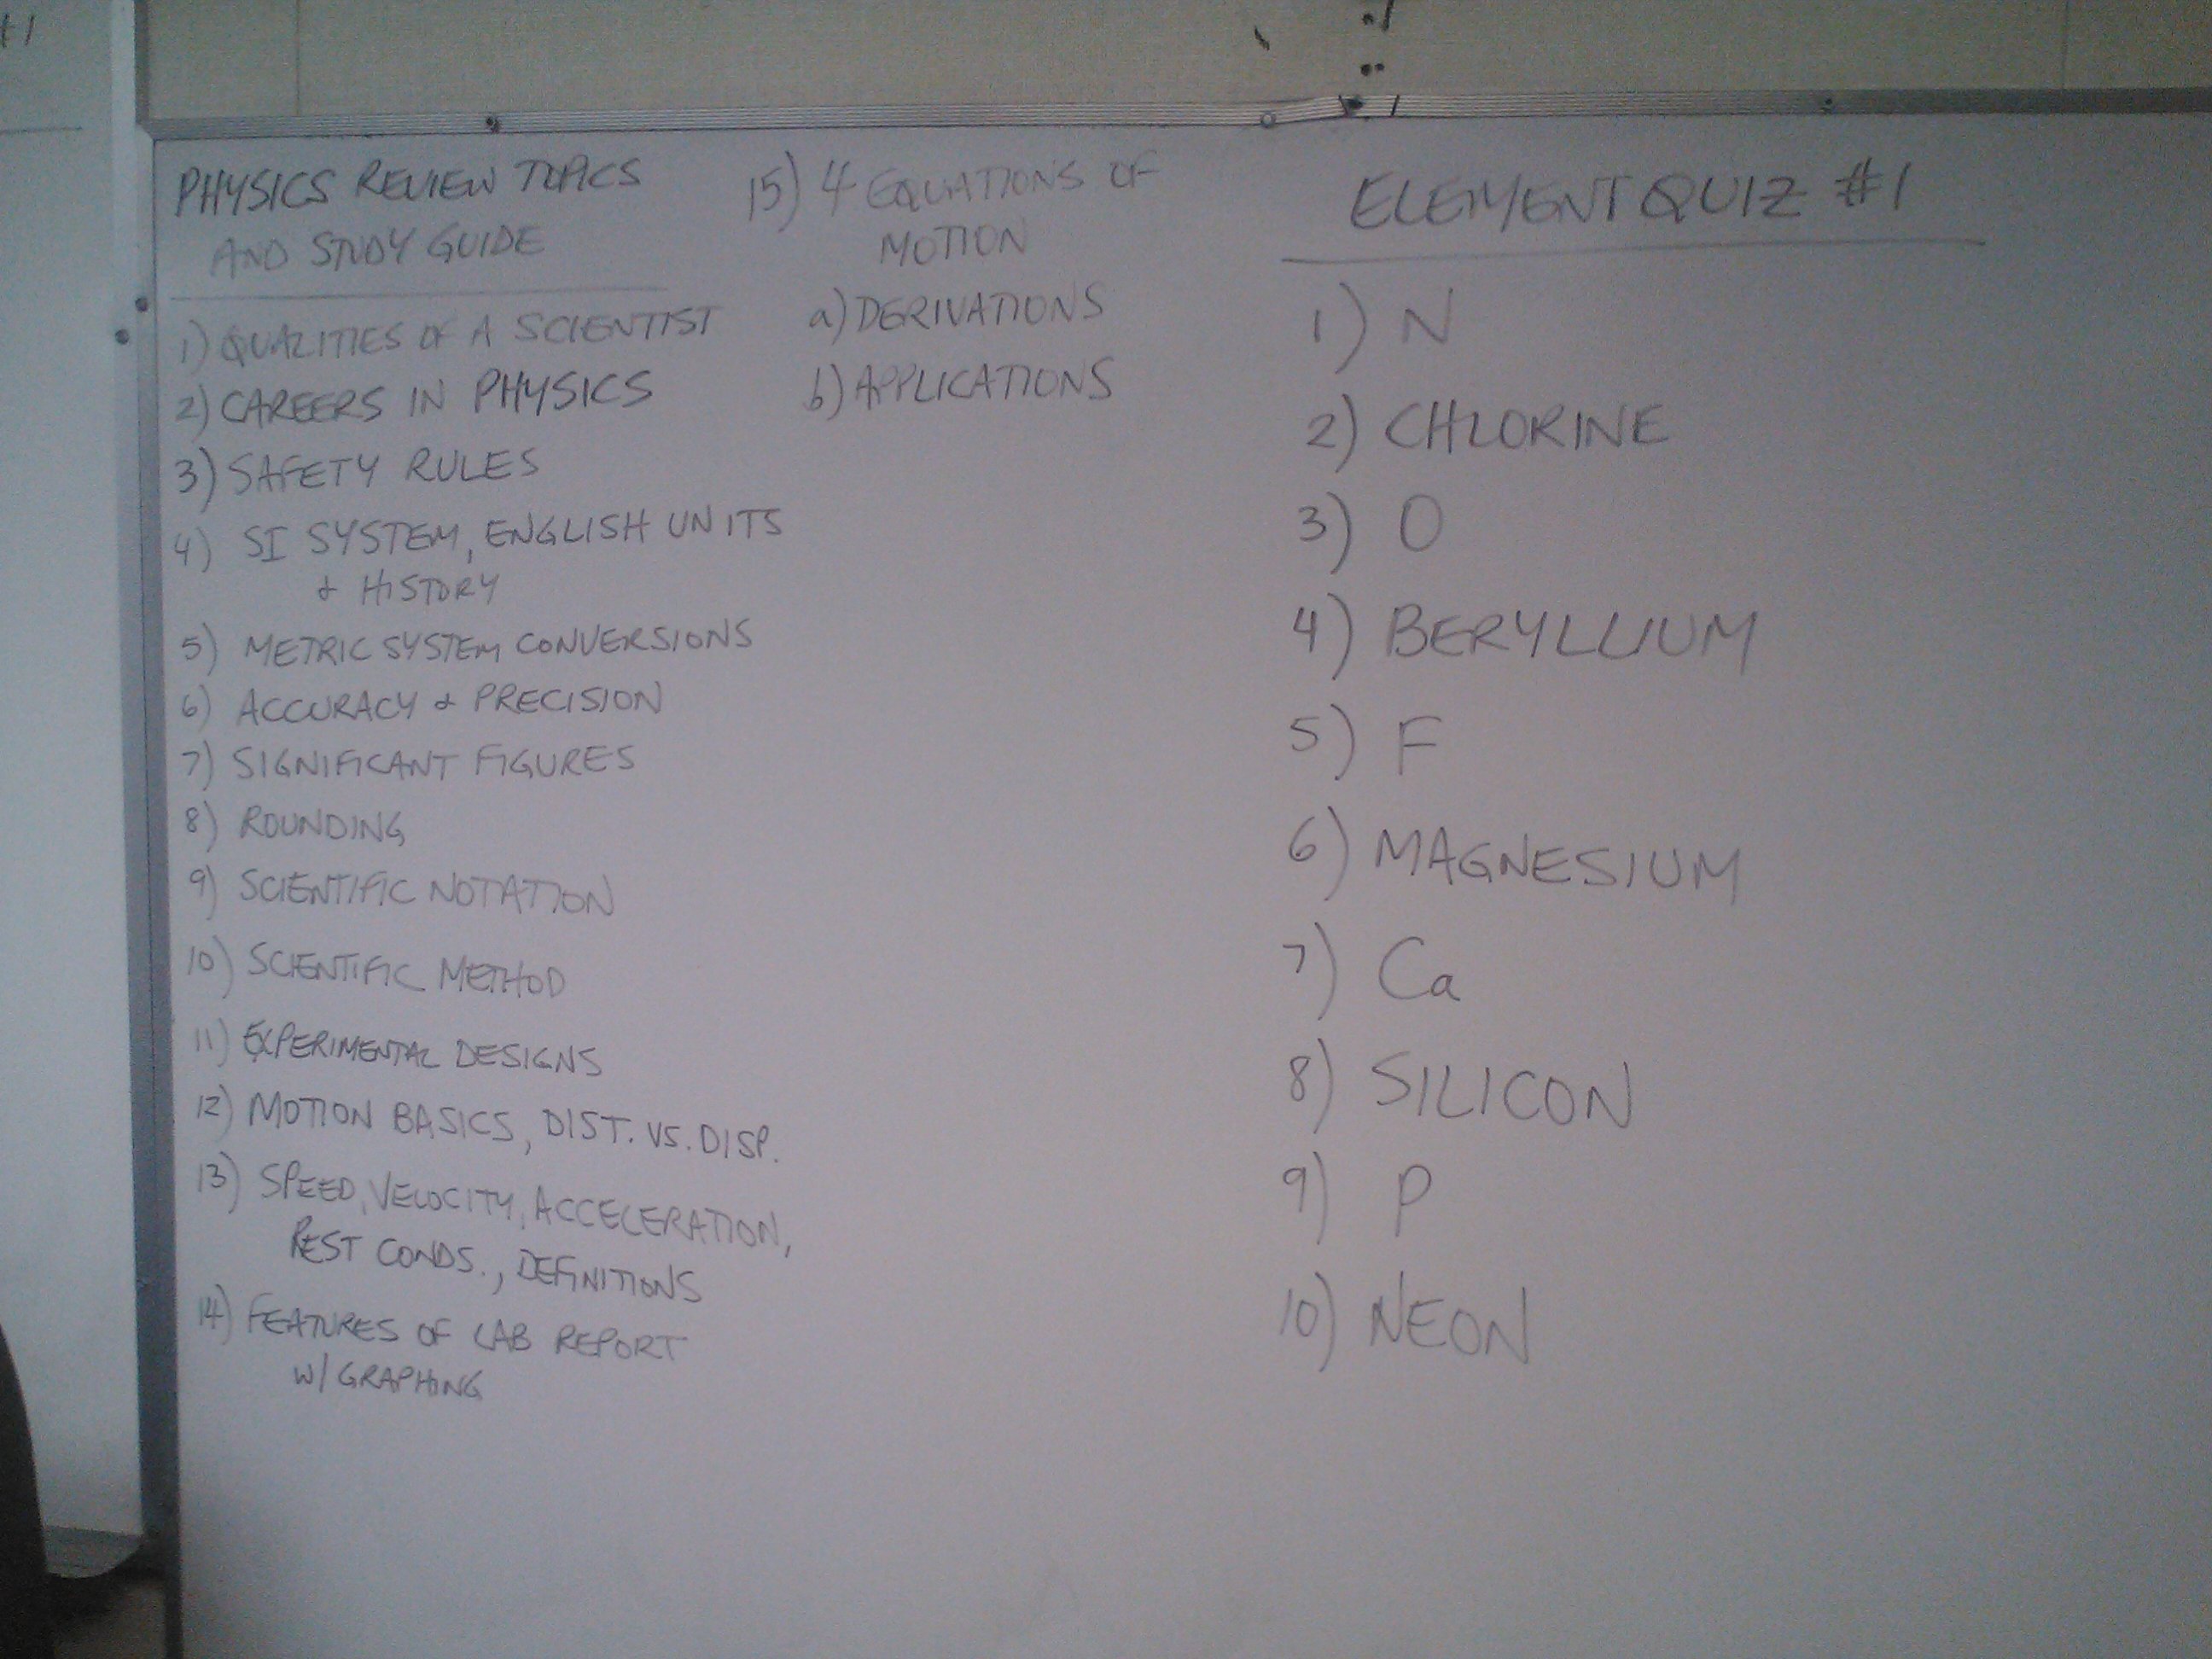 #1
PHYSICS REVIEW TOPICS
AND STUDY GUIDE
1) QUALITIES OF A SCIENTIST
2) CAREERS IN PHYSICS
3) SAFETY RULES
4) SI SYSTEM, ENGLISH UNITS
& HISTORY
5) METRIC SYSTEM CONVERSIONS
6) ACCURACY & PRECISION
7) SIGNIFICANT FIGURES
8) ROUNDING
9) SCIENTIFIC NOTATION
10) SCIENTIFIC METHOD
11) EXPERIMENTAL DESIGNS
12) MOTION BASICS, DIST. VS. DISP.
13) SPEED, VELOCITY, ACCELERATION,
REST CONDS., DEFINITIONS
14) FEATURES OF LAB REPORT
W/ GRAPHING
15) 4 EQUATIONS OF
MOTION
a) DERIVATIONS
b) APPLICATIONS
ELEMENT QUIZ #1
1) N
2) CHLORINE
3) O
4) BERYLLIUM
5) F
6) MAGNESIUM
7) Ca
8) SILICON
9) P
10) NEON